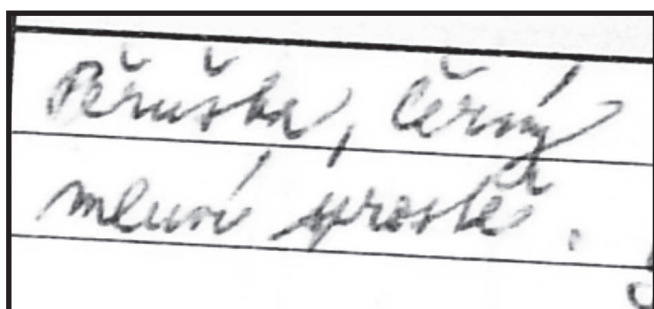 Pěruška, Černý
mluví sprostě.